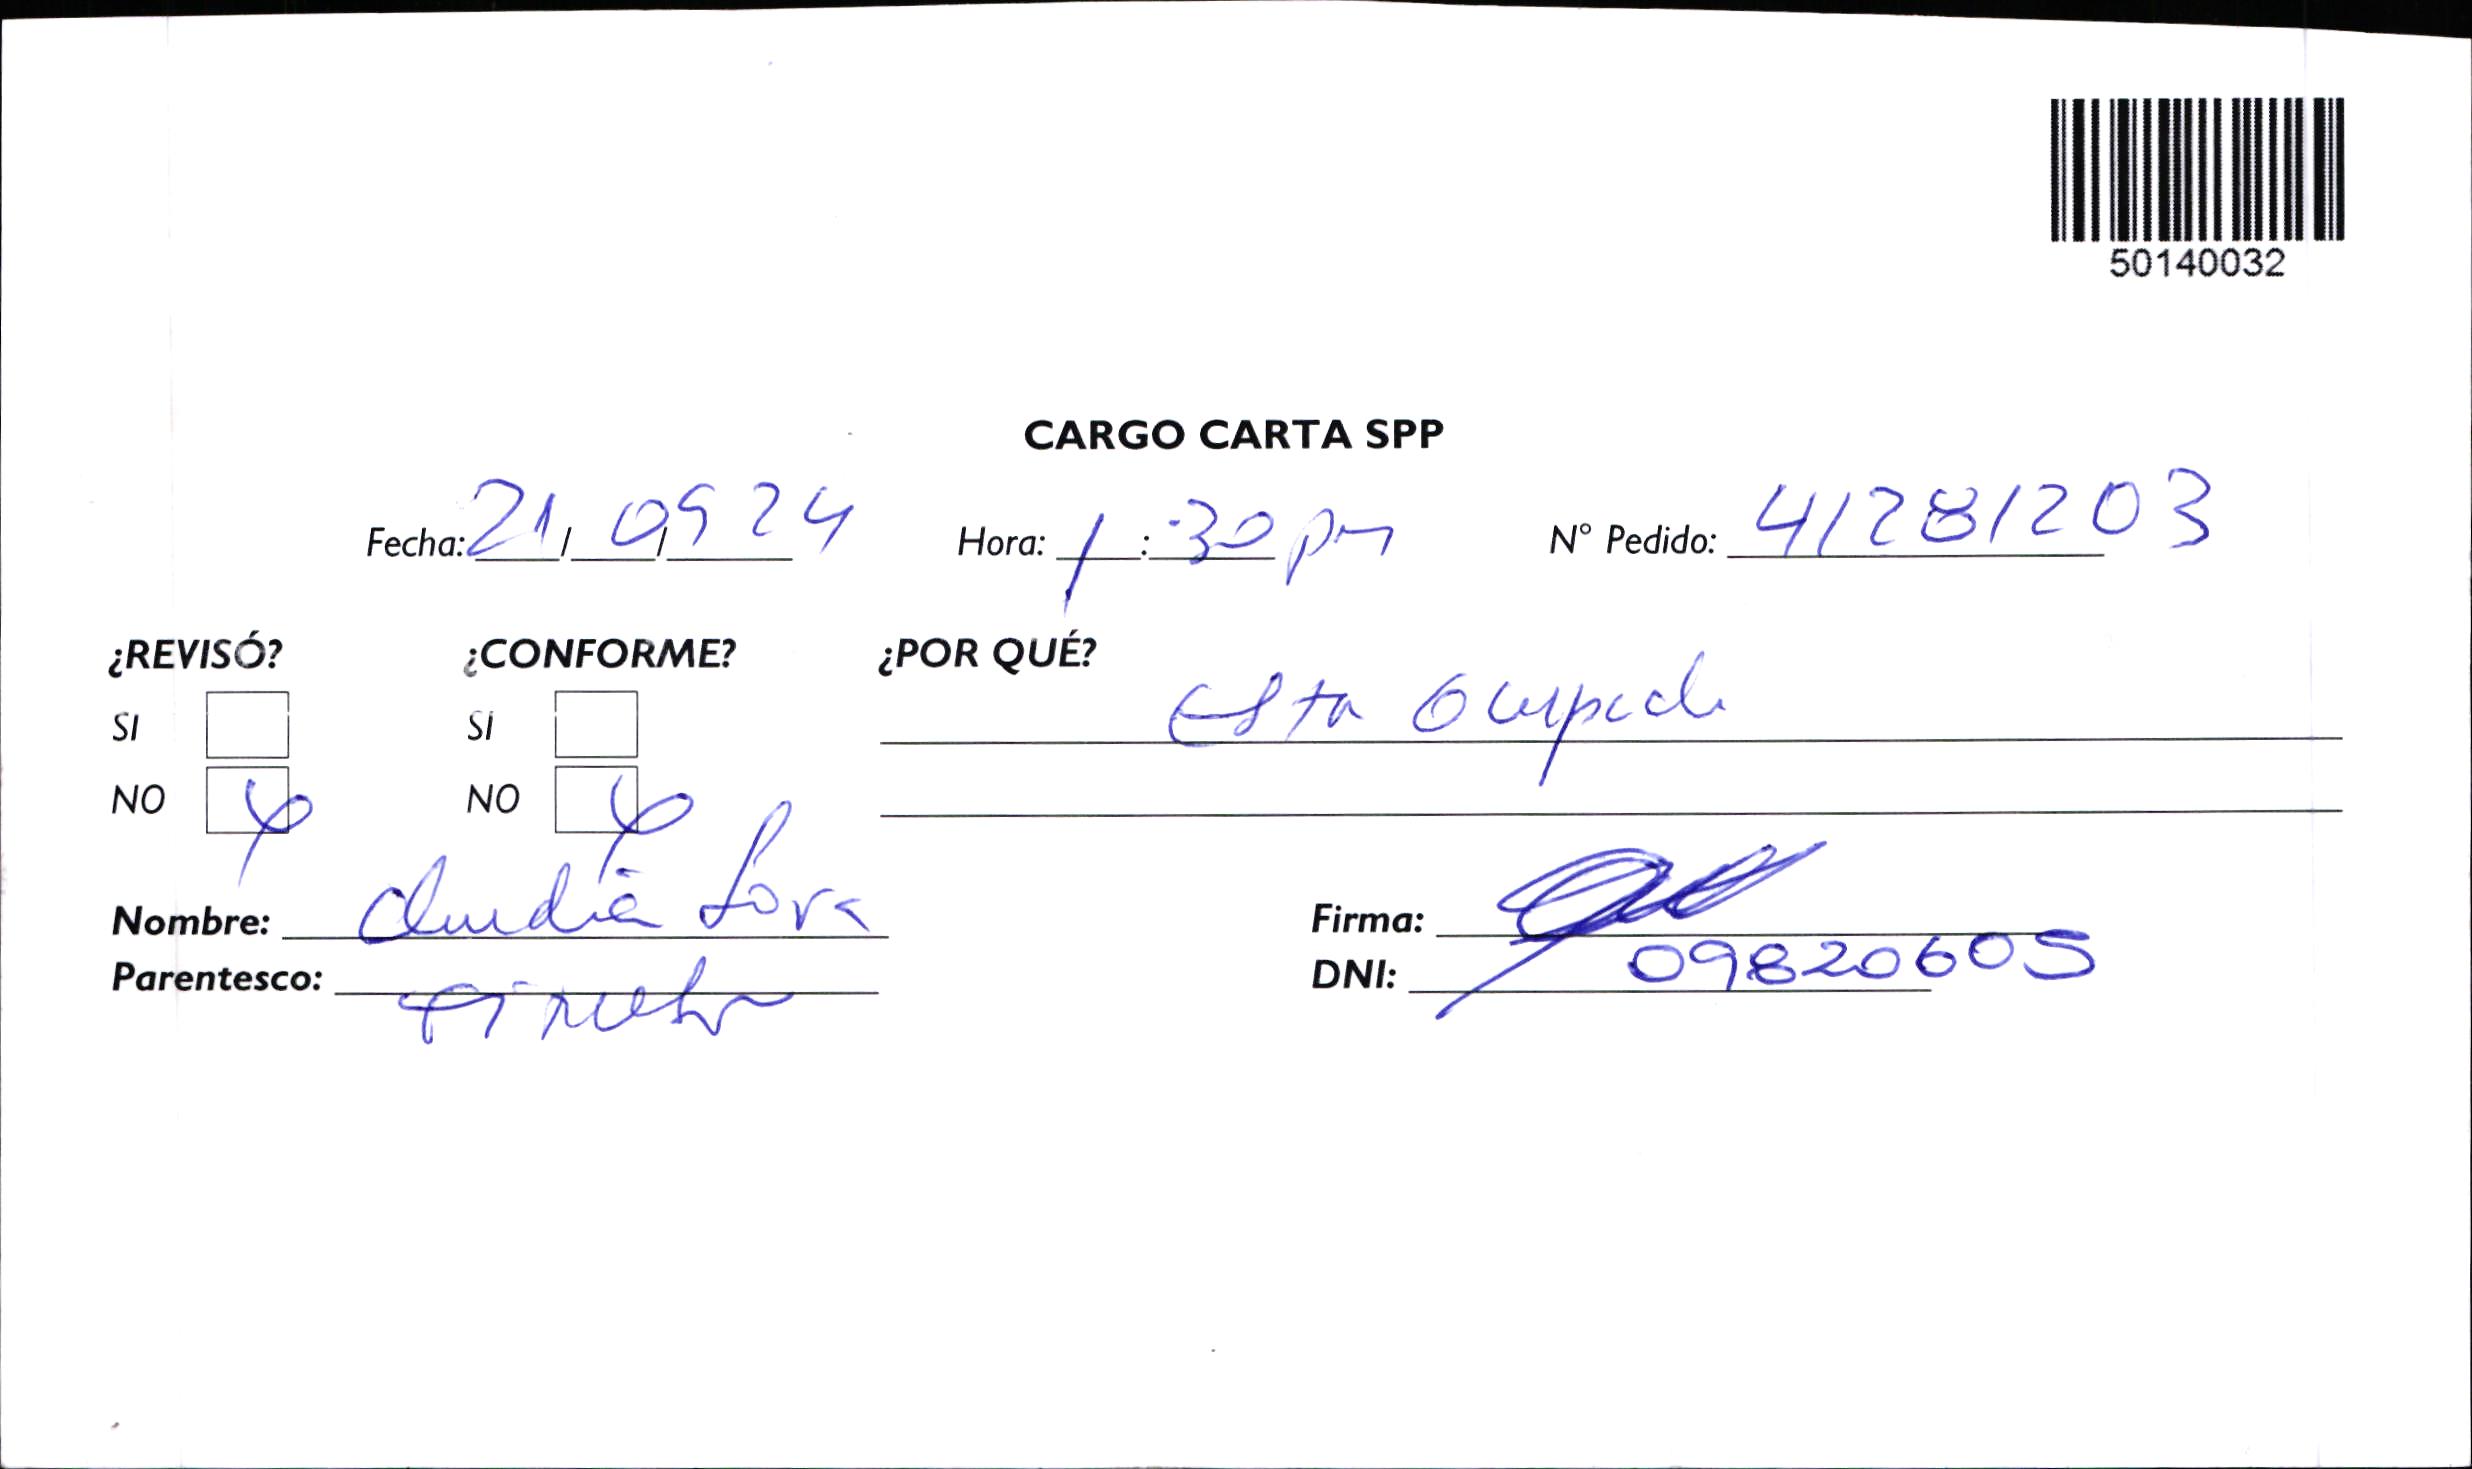 50140032
CARGO CARTA SPP
Fecha: 21/09/24 Hora: 1:30 pm N° Pedido: 41281203
¿REVISÓ? ¿CONFORME? ¿POR QUÉ?
SI SI Esta Ocupada
NO NO
Nombre: Claudia Lora Firma:
Parentesco: DNI: 09820605